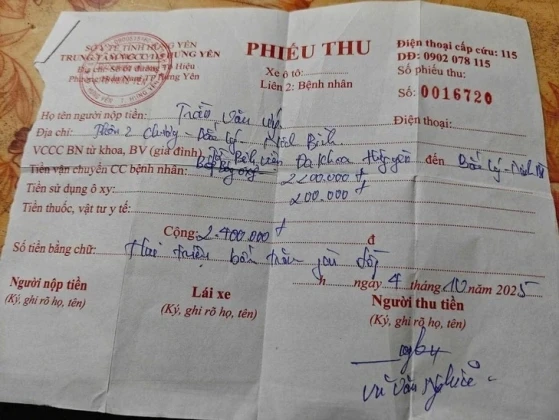 SỞ Y TẾ TỈNH HƯNG YÊN
TRUNG TÂM VCCC 115 HƯNG YÊN
Địa chỉ: Số 01 đường TP Hiệu
Phường Hiến Nam TP Hưng Yên
PHIẾU THU
Xe ô tô:
Liên 2: Bệnh nhân
Điện thoại cấp cứu: 115
DĐ: 0902 078 115
Số phiếu thu:
Số: 0016720
Họ tên người nộp tiền: Trần Văn Điện thoại:
Địa chỉ: Thôn 2 - Bình
VCCC BN từ khoa, BV (giá đình) Bệnh viện Đa Khoa đến Lý -
Tiền vận chuyển CC bệnh nhân: 2200.000 đ
Tiền sử dụng ô xy: 200.000
Tiền thuốc, vật tư y tế:
Cộng: 2.400.000 đ đ
Số tiền bằng chữ: Hai triệu bốn trăm đồng
h ngày 4 tháng 10 năm 2025
Người nộp tiền
(Ký, ghi rõ họ, tên)
Lái xe
(Ký, ghi rõ họ, tên)
Người thu tiền
(Ký, ghi rõ họ, tên)
Vũ Văn